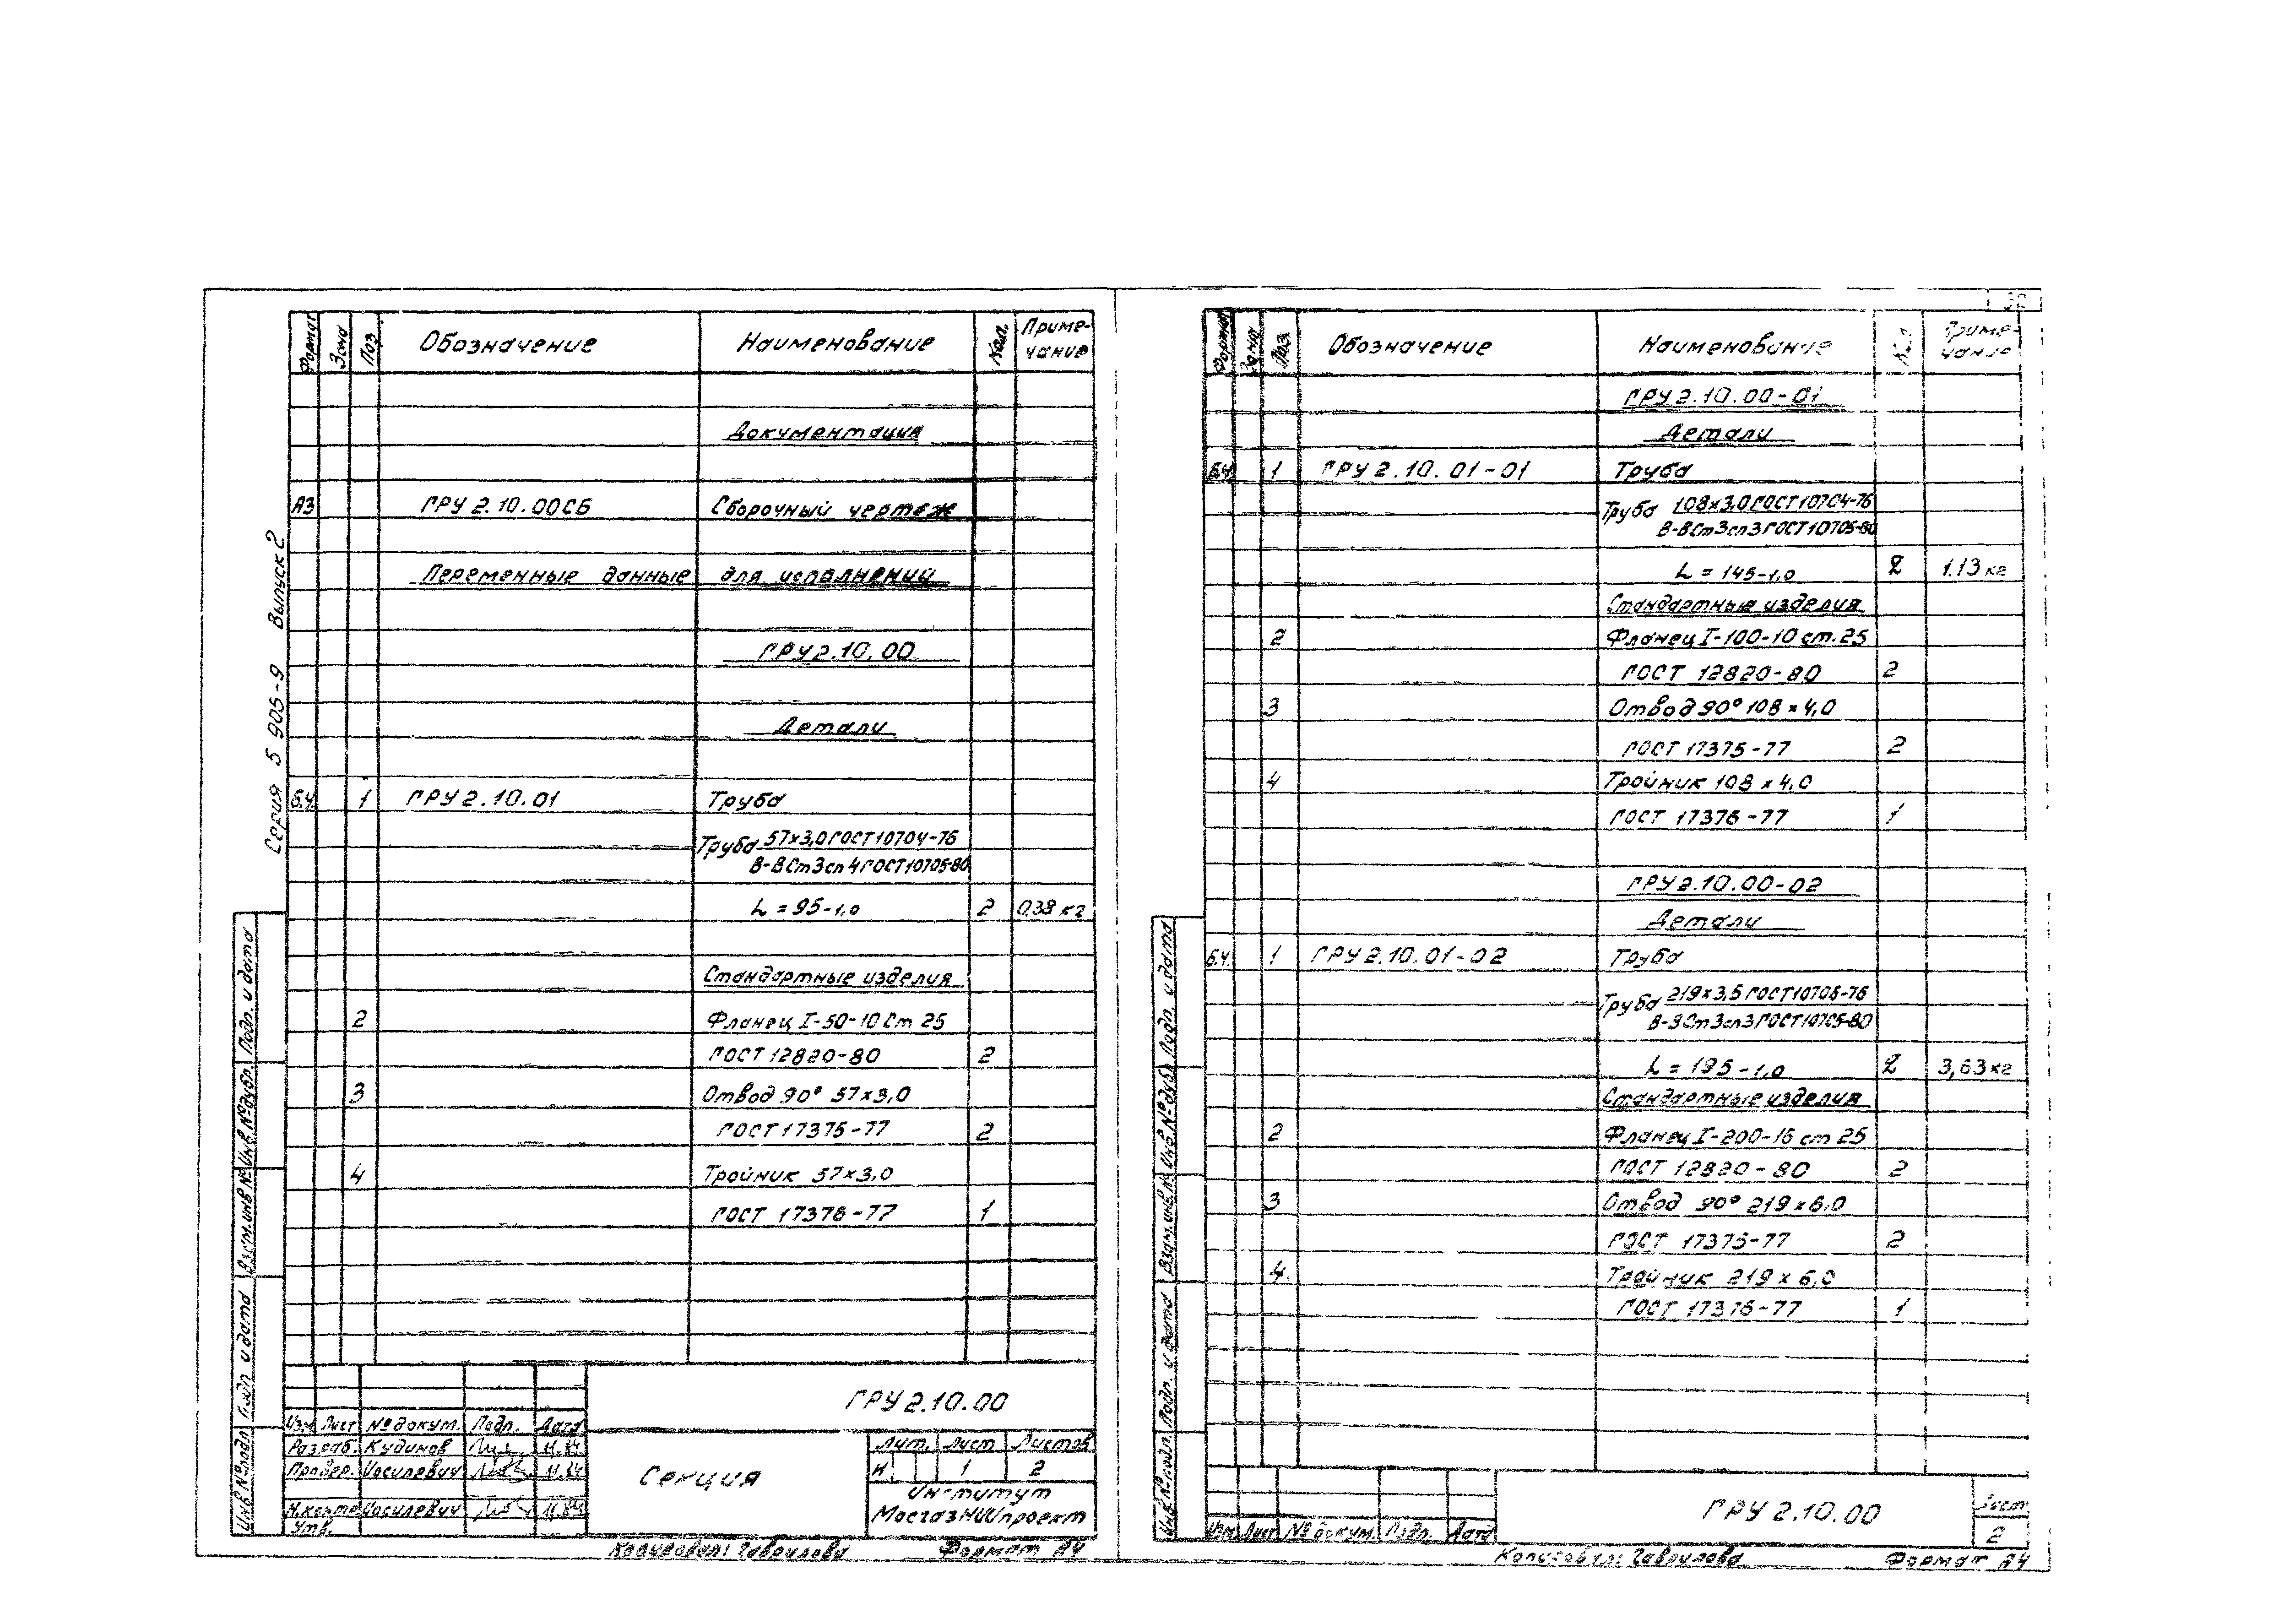 Серия 5 905-9 Выпуск 2
Формат Зона Поз. Обозначение Наименование Кол. Приме-
чание
Документация
А3 ГРУ 2.10.00СБ Сборочный чертеж
Переменные данные для исполнений
ГРУ 2.10.00
Детали
Б.Ч. 1 ГРУ 2.10.01 Труба
Труба 57х3,0 ГОСТ 10704-76
В-ВСт3сп4 ГОСТ 10705-80
L = 95-1,0 2 0,38 кг
Стандартные изделия
2 Фланец I-50-10 Ст 25
ГОСТ 12820-80 2
3 Отвод 90° 57х3,0
ГОСТ 17375-77 2
4 Тройник 57х3,0
ГОСТ 17376-77 1
Подп. и дата
Инв № дубл.
Взам. инв №
Подп. и дата
Инв № подл.
ГРУ 2.10.00
Изм Лист № докум. Подп. Дата
Разраб. Кудинов 11.84
Провер. Иосилевич 11.84
Н.контр Иосилевич 11.84
Утв.
Секция
Лит. Лист Листов
И 1 2
Институт
МосгазНИИпроект
Копировал: Гаврилова Формат А4
32
Формат Зона Поз. Обозначение Наименование Кол Приме-
чание
ГРУ 2.10.00-01
Детали
Б.Ч. 1 ГРУ 2.10.01-01 Труба
Труба 108х3,0 ГОСТ 10704-76
В-ВСт3сп3 ГОСТ 10705-80
L = 145-1,0 2 1.13 кг
Стандартные изделия
2 Фланец I-100-10 ст. 25
ГОСТ 12820-80 2
3 Отвод 90° 108х4,0
ГОСТ 17375-77 2
4 Тройник 108 х 4,0
ГОСТ 17376-77 1
ГРУ 2.10.00-02
Детали
Б.Ч. 1 ГРУ 2.10.01-02 Труба
Труба 219х3,5 ГОСТ 10706-76
В-ВСт3сп3 ГОСТ 10705-80
L = 195-1,0 2 3,63 кг
Стандартные изделия
2 Фланец I-200-16 ст 25
ГОСТ 12820-80 2
3 Отвод 90° 219х6,0
ГОСТ 17375-77 2
4. Тройник 219 х 6,0
ГОСТ 17376-77 1
Подп. и дата
Инв № дубл
Взам. инв. №
Подп. и дата
Инв № подл.
Изм Лист № докум. Подп. Дата
ГРУ 2.10.00
Лист
2
Копировал: Гаврилова Формат А4